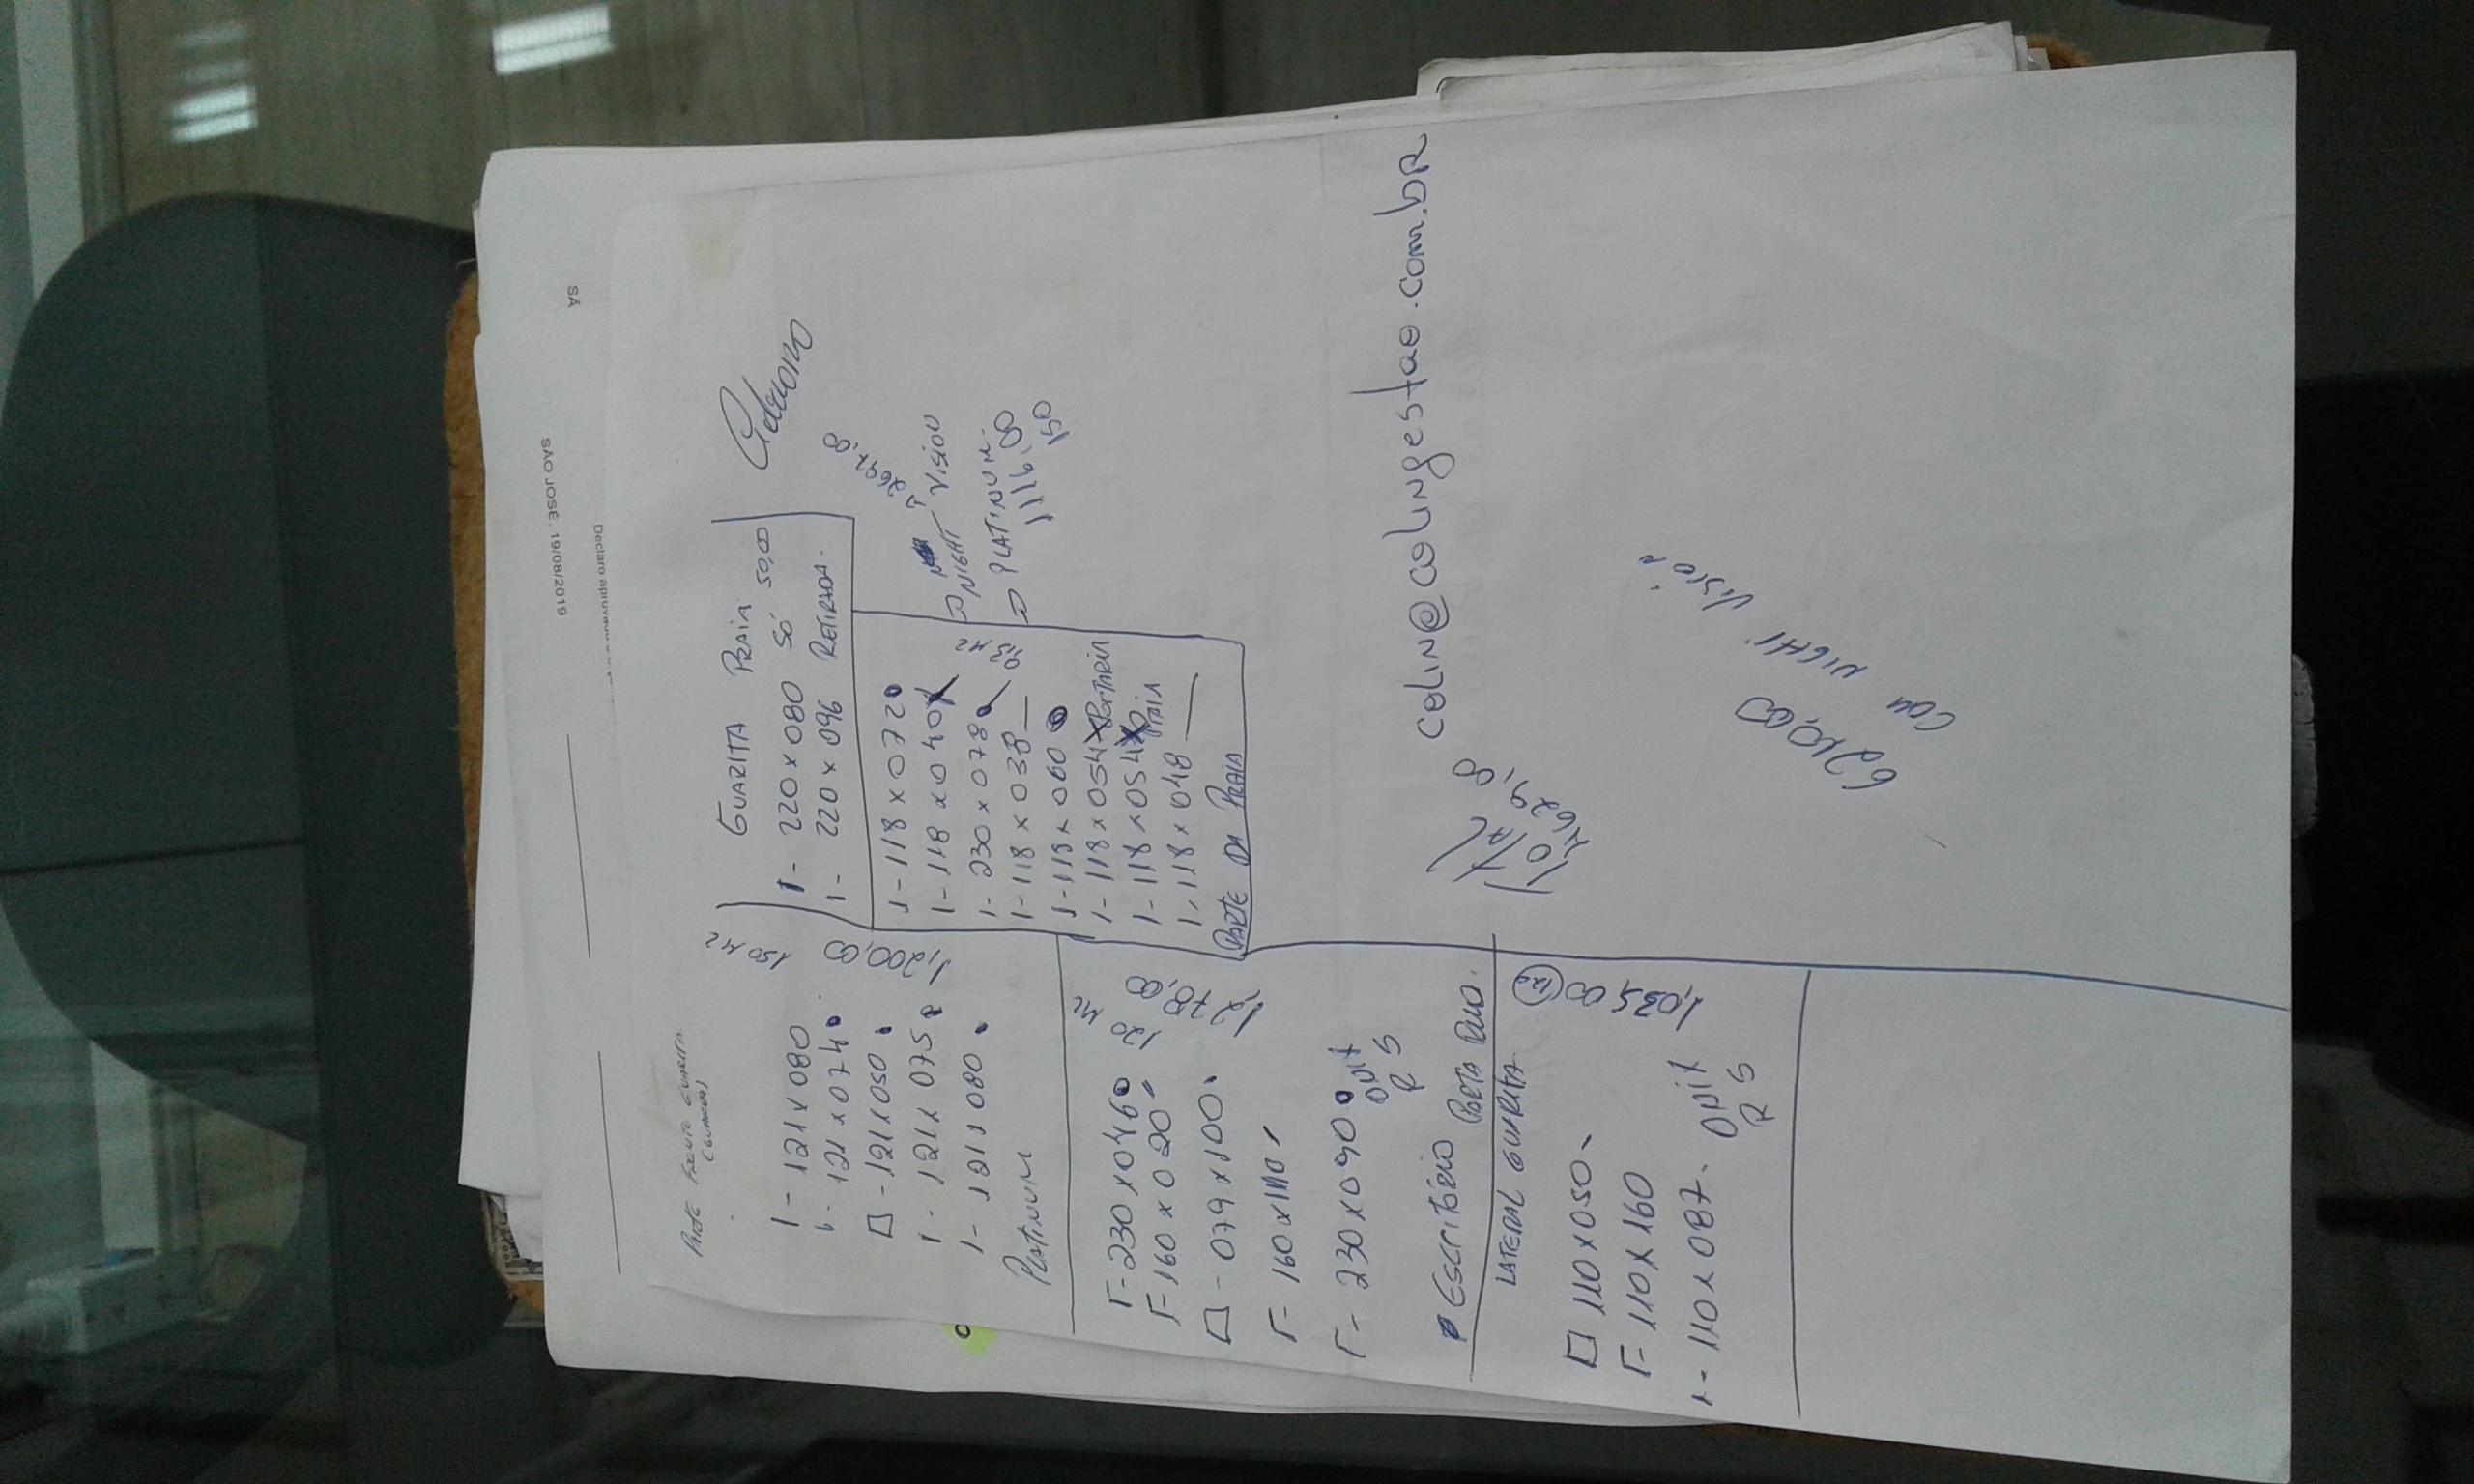 SÃO JOSÉ, 19/08/2019
SA
PARTE FRENTE GUARITA
1 - 121 x 080
1 - 121 x 074
□ - 121 x 050
1 - 121 x 075
1 - 121 x 080
PLATINUM
150 M²
1,200,00
GUARITA PRAIA
1 - 220 x 080 SÓ 50,00
1 - 220 x 096 RETIRADA.
1 - 118 x 072
1 - 118 x 040
1 - 230 x 078
1 - 118 x 038
1 - 118 x 060
1 - 118 x 054 PORTARIA
1 - 118 x 054 PRAIA
1 - 118 x 048
PARTE DA PRAIA
150 M²
NIGHT VISION
2691,00
PLATINUM.
1116,00
150
Γ - 230 x 046
Γ - 160 x 020
□ - 079 x 100
Γ - 160 x 110
Γ - 230 x 090
OPIT
R S
120 M²
1,278,00
ESCRITÓRIO PORTA
LATERAL GUARITA
□ 110 x 050
Γ - 110 x 160
1 - 110 x 087. OPIT
R S
1,035,00
colin@colingestao.com.br
TOTAL
4629,00
6210,00
COM NIGHT